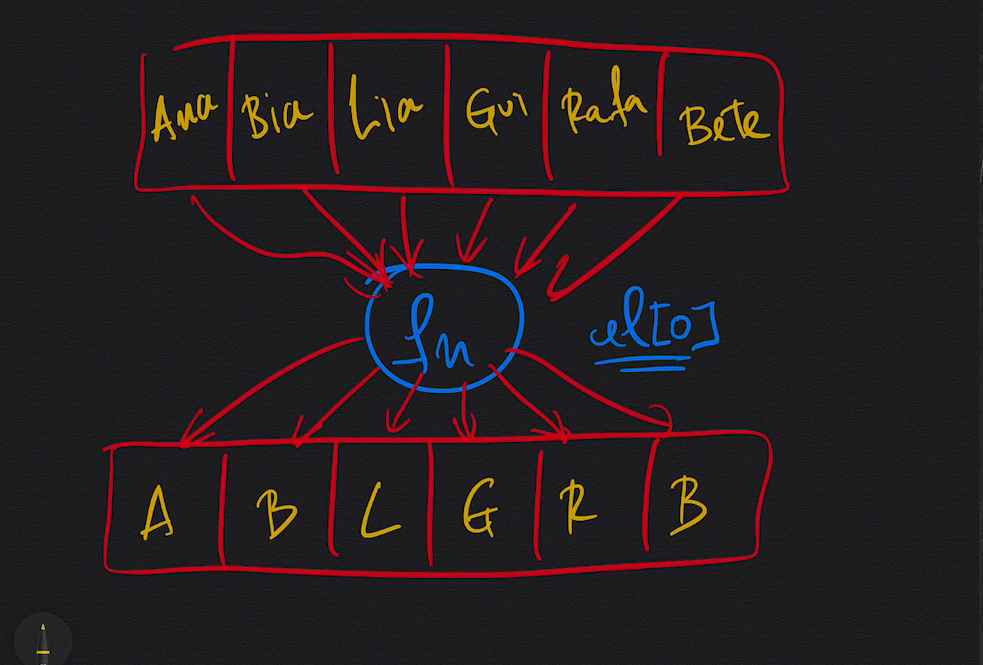 Ana Bia Lia Gui Rafa Bete
fn el[0]
A B L G R B